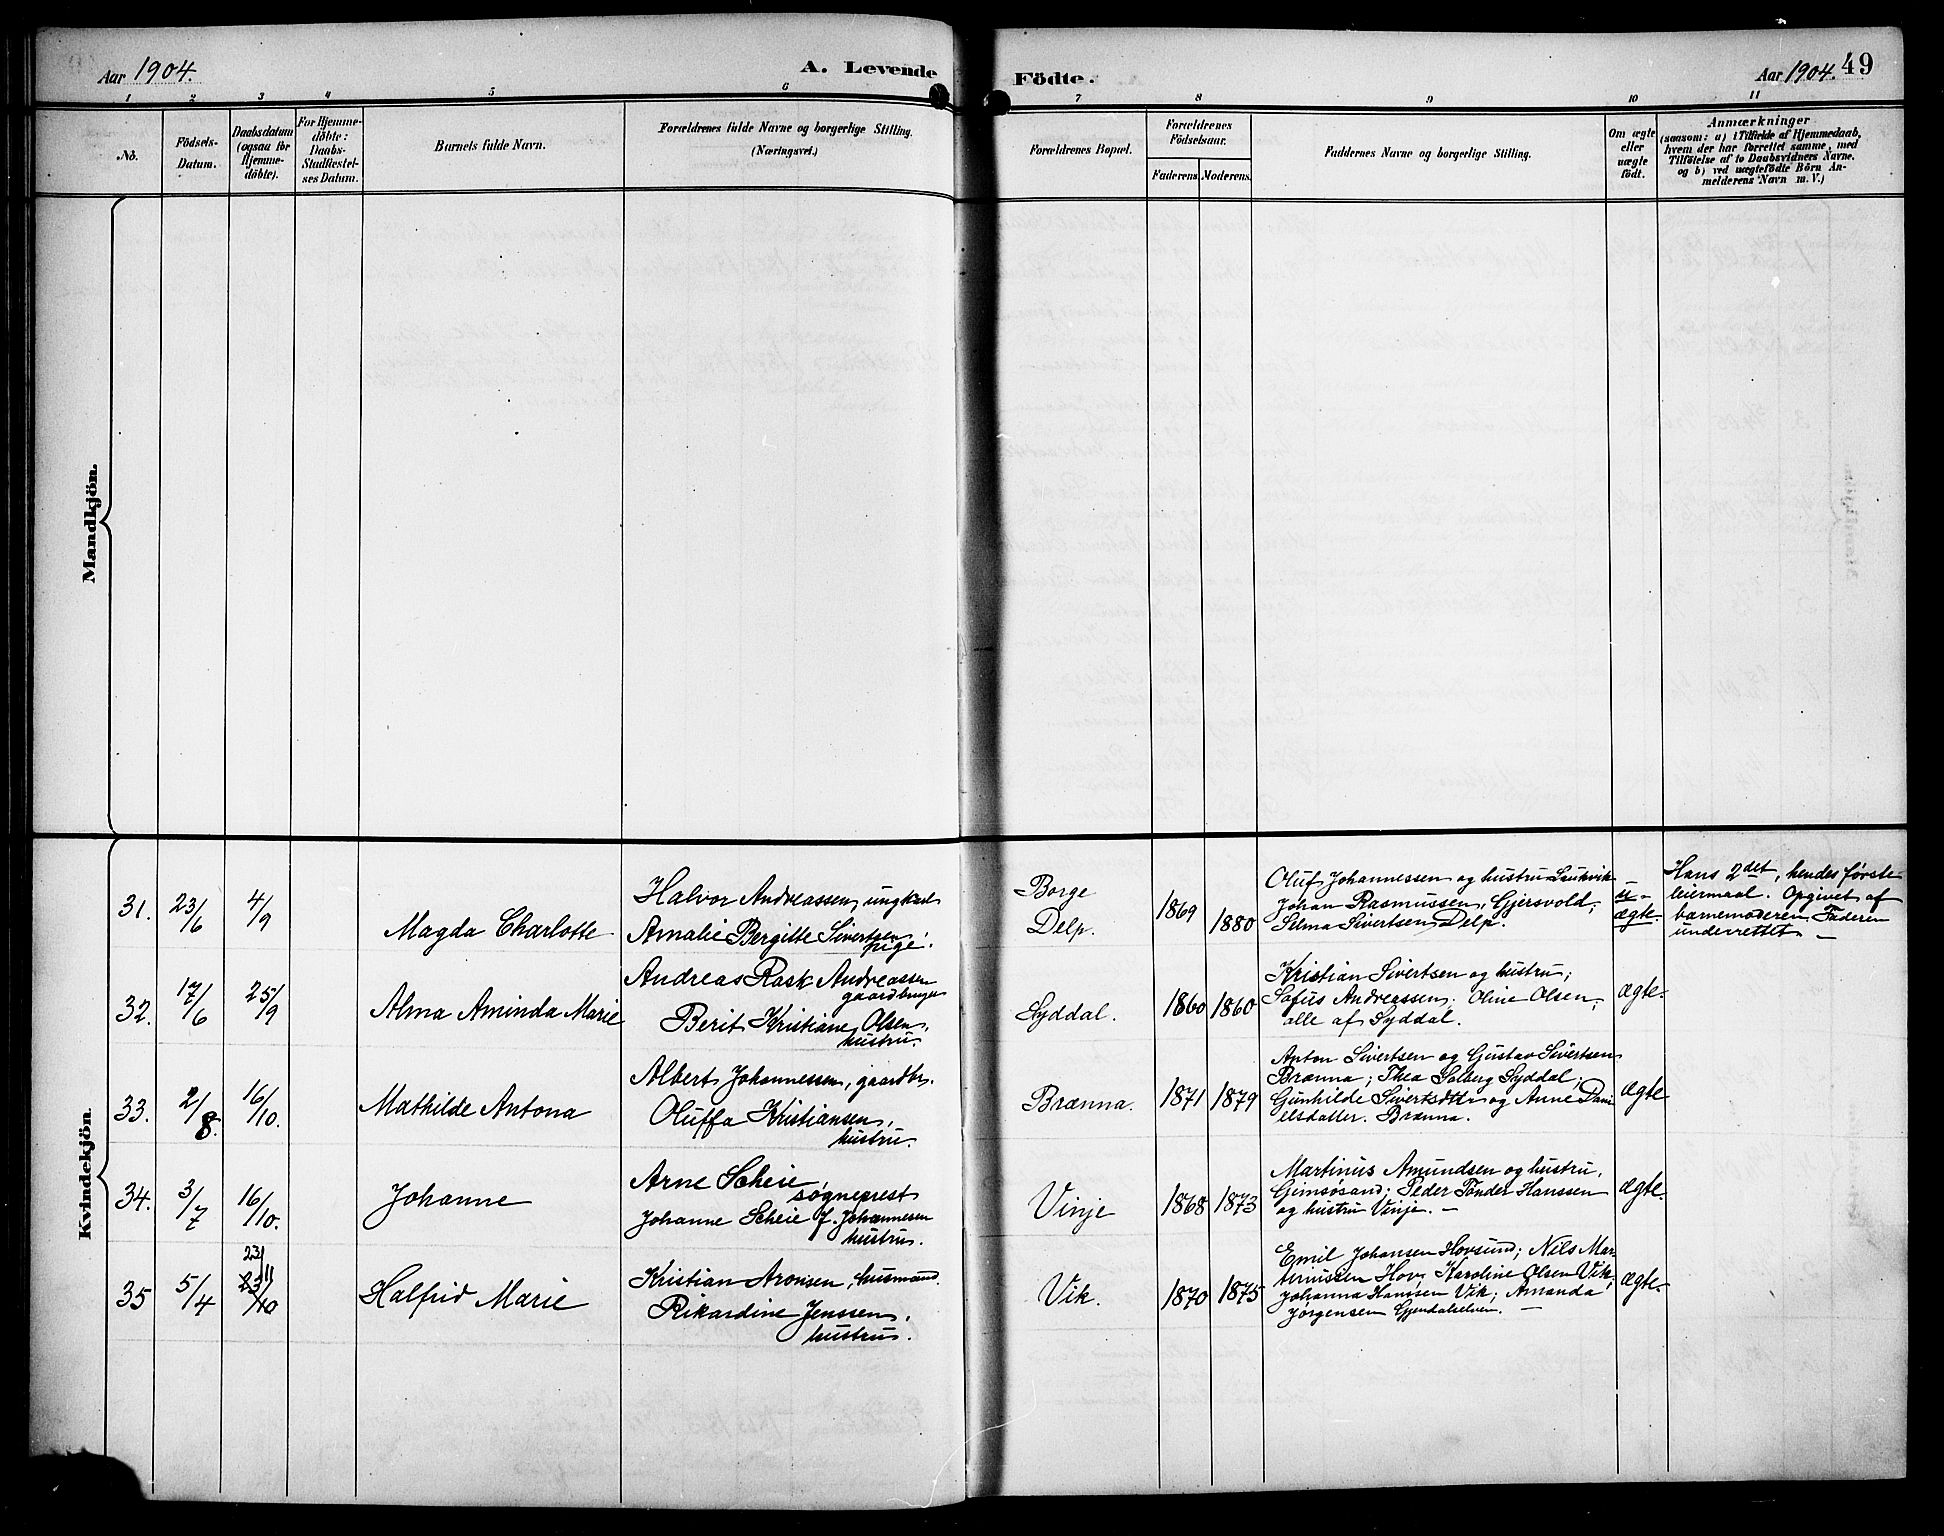 Aar 1904.
A. Levende
Födte.
Aar 1904. 49
1 2 3 4 5 6 7 8 9 10 11
No.
Födsels-
Datum.
Daabsdatum
(ogsaa for
Hjemme-
döbte).
For Hjemme-
döbte:
Daabs-
Stadfæstel-
ses Datum.
Barnets fulde Navn.
Forældrenes fulde Navne og borgerlige Stilling.
(Næringsvei.)
Forældrenes Bopæl.
Forældrenes
Födselsaar.
Faderens. Moderens.
Faddernes Navne og borgerlige Stilling.
Om ægte
eller
uægte
födt.
Anmærkninger
(saasom: a) i Tilfælde af Hjemmedaab,
hvem der har forrettet samme, med
Tilföielse af to Daabsvidners Navne.
og b) ved uægtefödte Börn An-
melderens Navn m. V.)
Mandkjön.
Kvindekjön.
31.
23/6
4/9
Magda Charlotte
Halvor Andreassen, ungkarl
Amalie Bergitte Sivertsen,
pige.
Borge
Delp.
1869
1880
Oluf Johannessen og hustru
Johan Rasmussen, Gjersvold;
Selma Sivertsen Delp.
u-
ægte.
Hans 2det, hendes første
leiermaal. Opgivet af
barnemoderen. Faderen
underrettet. —
32.
17/6
25/9
Alma Aminda Marie
Andreas Rask Andreassen
gaardbruger
Berit Kristiane Olsen,
hustru.
Syddal.
1860
1860
Kristian Sivertsen og hustru;
Sofus Andreassen; Oline Olsen,
alle af Syddal.
ægte.
33.
2/8.
16/10.
Mathilde Antona
Albert Johannessen, gaardbr.
Oluffa Kristiansen,
hustru.
Brænna.
1871
1879
Anton Sivertsen og Gustav Sivertsen
Brænna; Thea Solberg Syddal;
Gunhilde Sivertsdttr og Anne Dani
elsdatter. Brænna.
ægte
34.
3/7
16/10.
Johanne
Arne Scheie,
søgneprest
Johanne Scheie f. Johannesen
hustru.
Vinje
1868
1873
Martinus Amundsen og hustru,
Gimsøsand; Peder Tønder Hanssen
og hustru Vinje. —
ægte.
35
5/4
23/11
23/10
Halfrid Marie
Kristian Aronsen, husmand.
Rikardine Jenssen,
hustru.
Vik.
1870
1875
Emil Johansen Hovsund; Nils Mar-
tinussen Hov; Karoline Olsen Vik;
Johanna Hansen Vik; Amanda
Jørgensen Gjendalselven. —
ægte.